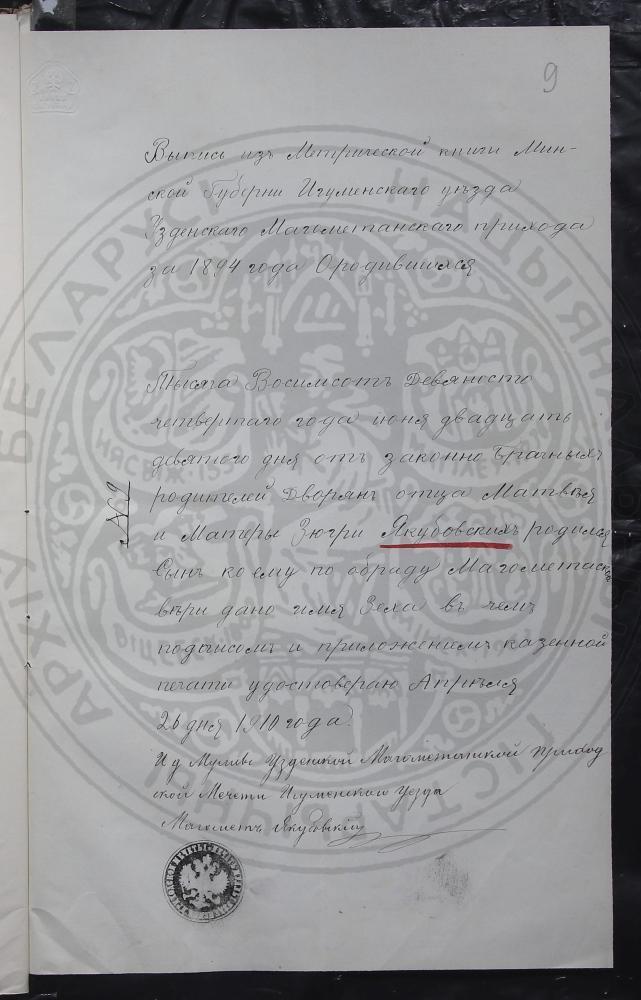 9
Выпись изъ Метрической книги Мин-
ской Губерни Игуменскаго уѣзда
Узденскаго Магометанскаго прихода
за 1894 года О родившихся
Тысяча Восимсотъ Девяносто
четвертаго года июня двадцать
девятого дня отъ законно брачныхъ
родителей Дворянъ отца Матвѣя
и Матеры Зюгри Якубовскихъ родился
Сынъ коему по обряду Магометанской
вѣри дано имя Зеха въ чемъ
подписомъ и приложениемъ казенной
печати удостовераю Апрѣля
26 дня 1910 года
И д Муллы Узденской Магометанской приход
ской Мечети Игуменскаго уезда
Магометъ Якубовскій